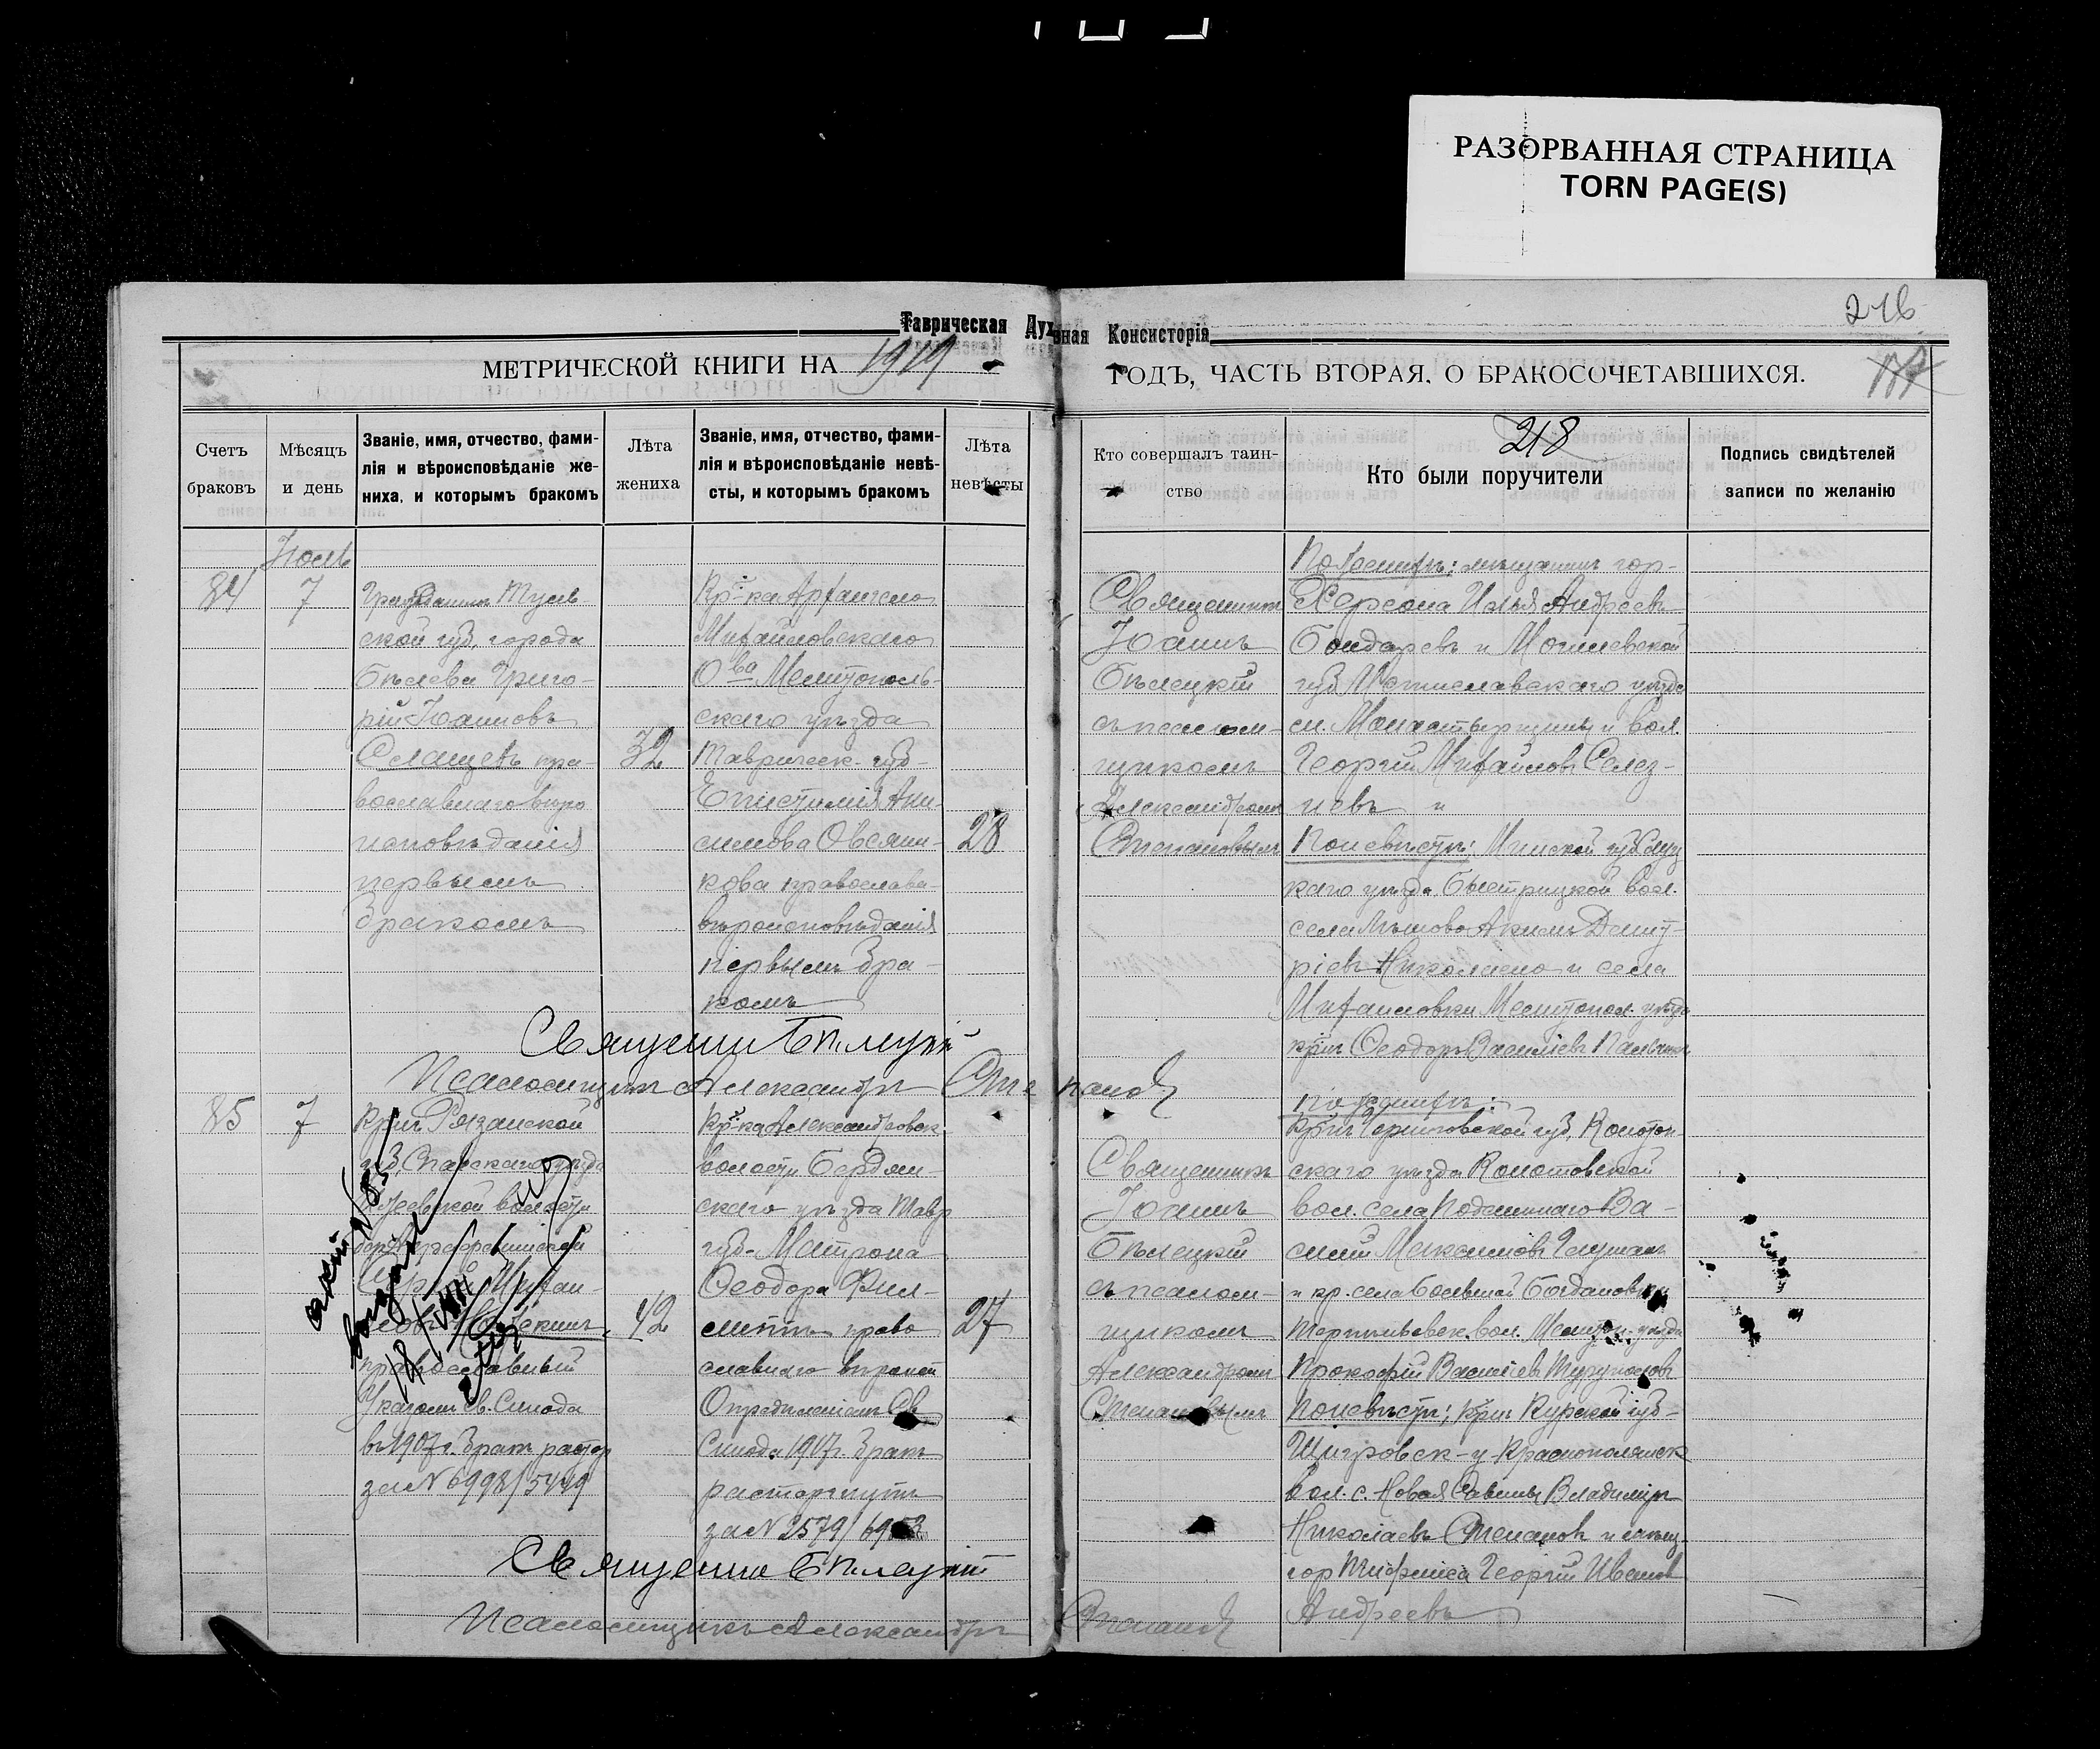 РАЗОРВАННАЯ СТРАНИЦА
TORN PAGE(S)
246
Таврическая Духовная Консисторія
МЕТРИЧЕСКОЙ КНИГИ НА 1919
ГОДЪ, ЧАСТЬ ВТОРАЯ, О БРАКОСОЧЕТАВШИХСЯ.
218
Счетъ браковъ
Мѣсяцъ и день
Званіе, имя, отчество, фами-
лія и вѣроисповѣданіе же-
ниха, и которымъ бракомъ
Лѣта жениха
Званіе, имя, отчество, фами-
лія и вѣроисповѣданіе невѣ-
сты, и которымъ бракомъ
Лѣта невѣсты
Кто совершалъ таин-
ство
Кто были поручители
Подпись свидѣтелей
записи по желанію
84
7
Гражданинъ Туль-
ской губ. города
Бѣлева Григо-
рій Іоанновъ
пра-
вославнаго вѣро
исповѣданія
первымъ
бракомъ
32
Кр-ка Архангело
Михайловскаго
О-ва Мелитополь-
скаго уѣзда
Таврическ. губ.
Епистимія Ани-
симова Овсянни-
кова православ-
вѣроисповѣданія
первымъ бра-
комъ
28
Священникъ
Іоаннъ
Бѣлецкій
съ псалом-
щикомъ
Александромъ
Степановымъ
По женихѣ: мѣщанинъ гор.
Херсона Илья Андреевъ
Бондаревъ и Могилевской
губ. Мстиславскаго уѣзда
м. Монастырщины и вол.
Георгій Михайловъ Селез-
невъ и
По невѣстѣ: Минской губ. Слуц
каго уѣзда Быстрицкой вол.
села Акимъ Дмит-
ріевъ и села
Михайловки Мелитопол. уѣзда
кр-нъ Ѳеодоръ Васильевъ
Священникъ Бѣлецкій
Псаломщикъ Александръ Степановъ
85
7
Кр-нъ Рязанской
губ. Спасскаго уѣзда
православный
Указомъ Св. Синода
въ 1907 г. бракъ расторг
за №
42
Кр-ка Александровск.
волости Бердян-
скаго уѣзда Тавр
губ. Матрона
Ѳеодора Фил-
право
славнаго вѣроисп
Опредѣленіемъ Св.
Синода 1917 г. бракъ
расторгнутъ
за №
27
Священникъ
Іоаннъ
Бѣлецкій
съ псалом-
щикомъ
Александромъ
Степановымъ
по женихѣ:
кр-нъ Черниговской губ. Конотоп-
скаго уѣзда
вол. села Подлипнаго Ва-
силій Максимовъ
и кр. села Большой Богдановки
вол. Мелитоп. уѣзда
Прокофій Васильевъ
По невѣстѣ: кр-нъ Курской губ.
Щигровск. у. Краснополянск
вол. с. Новая Савины Владиміръ
Николаевъ Степановъ и мѣщ.
гор. Тифлиса Георгій Ивановъ
Андреевъ
Священникъ Бѣлецкій
Псаломщикъ Александръ Степановъ